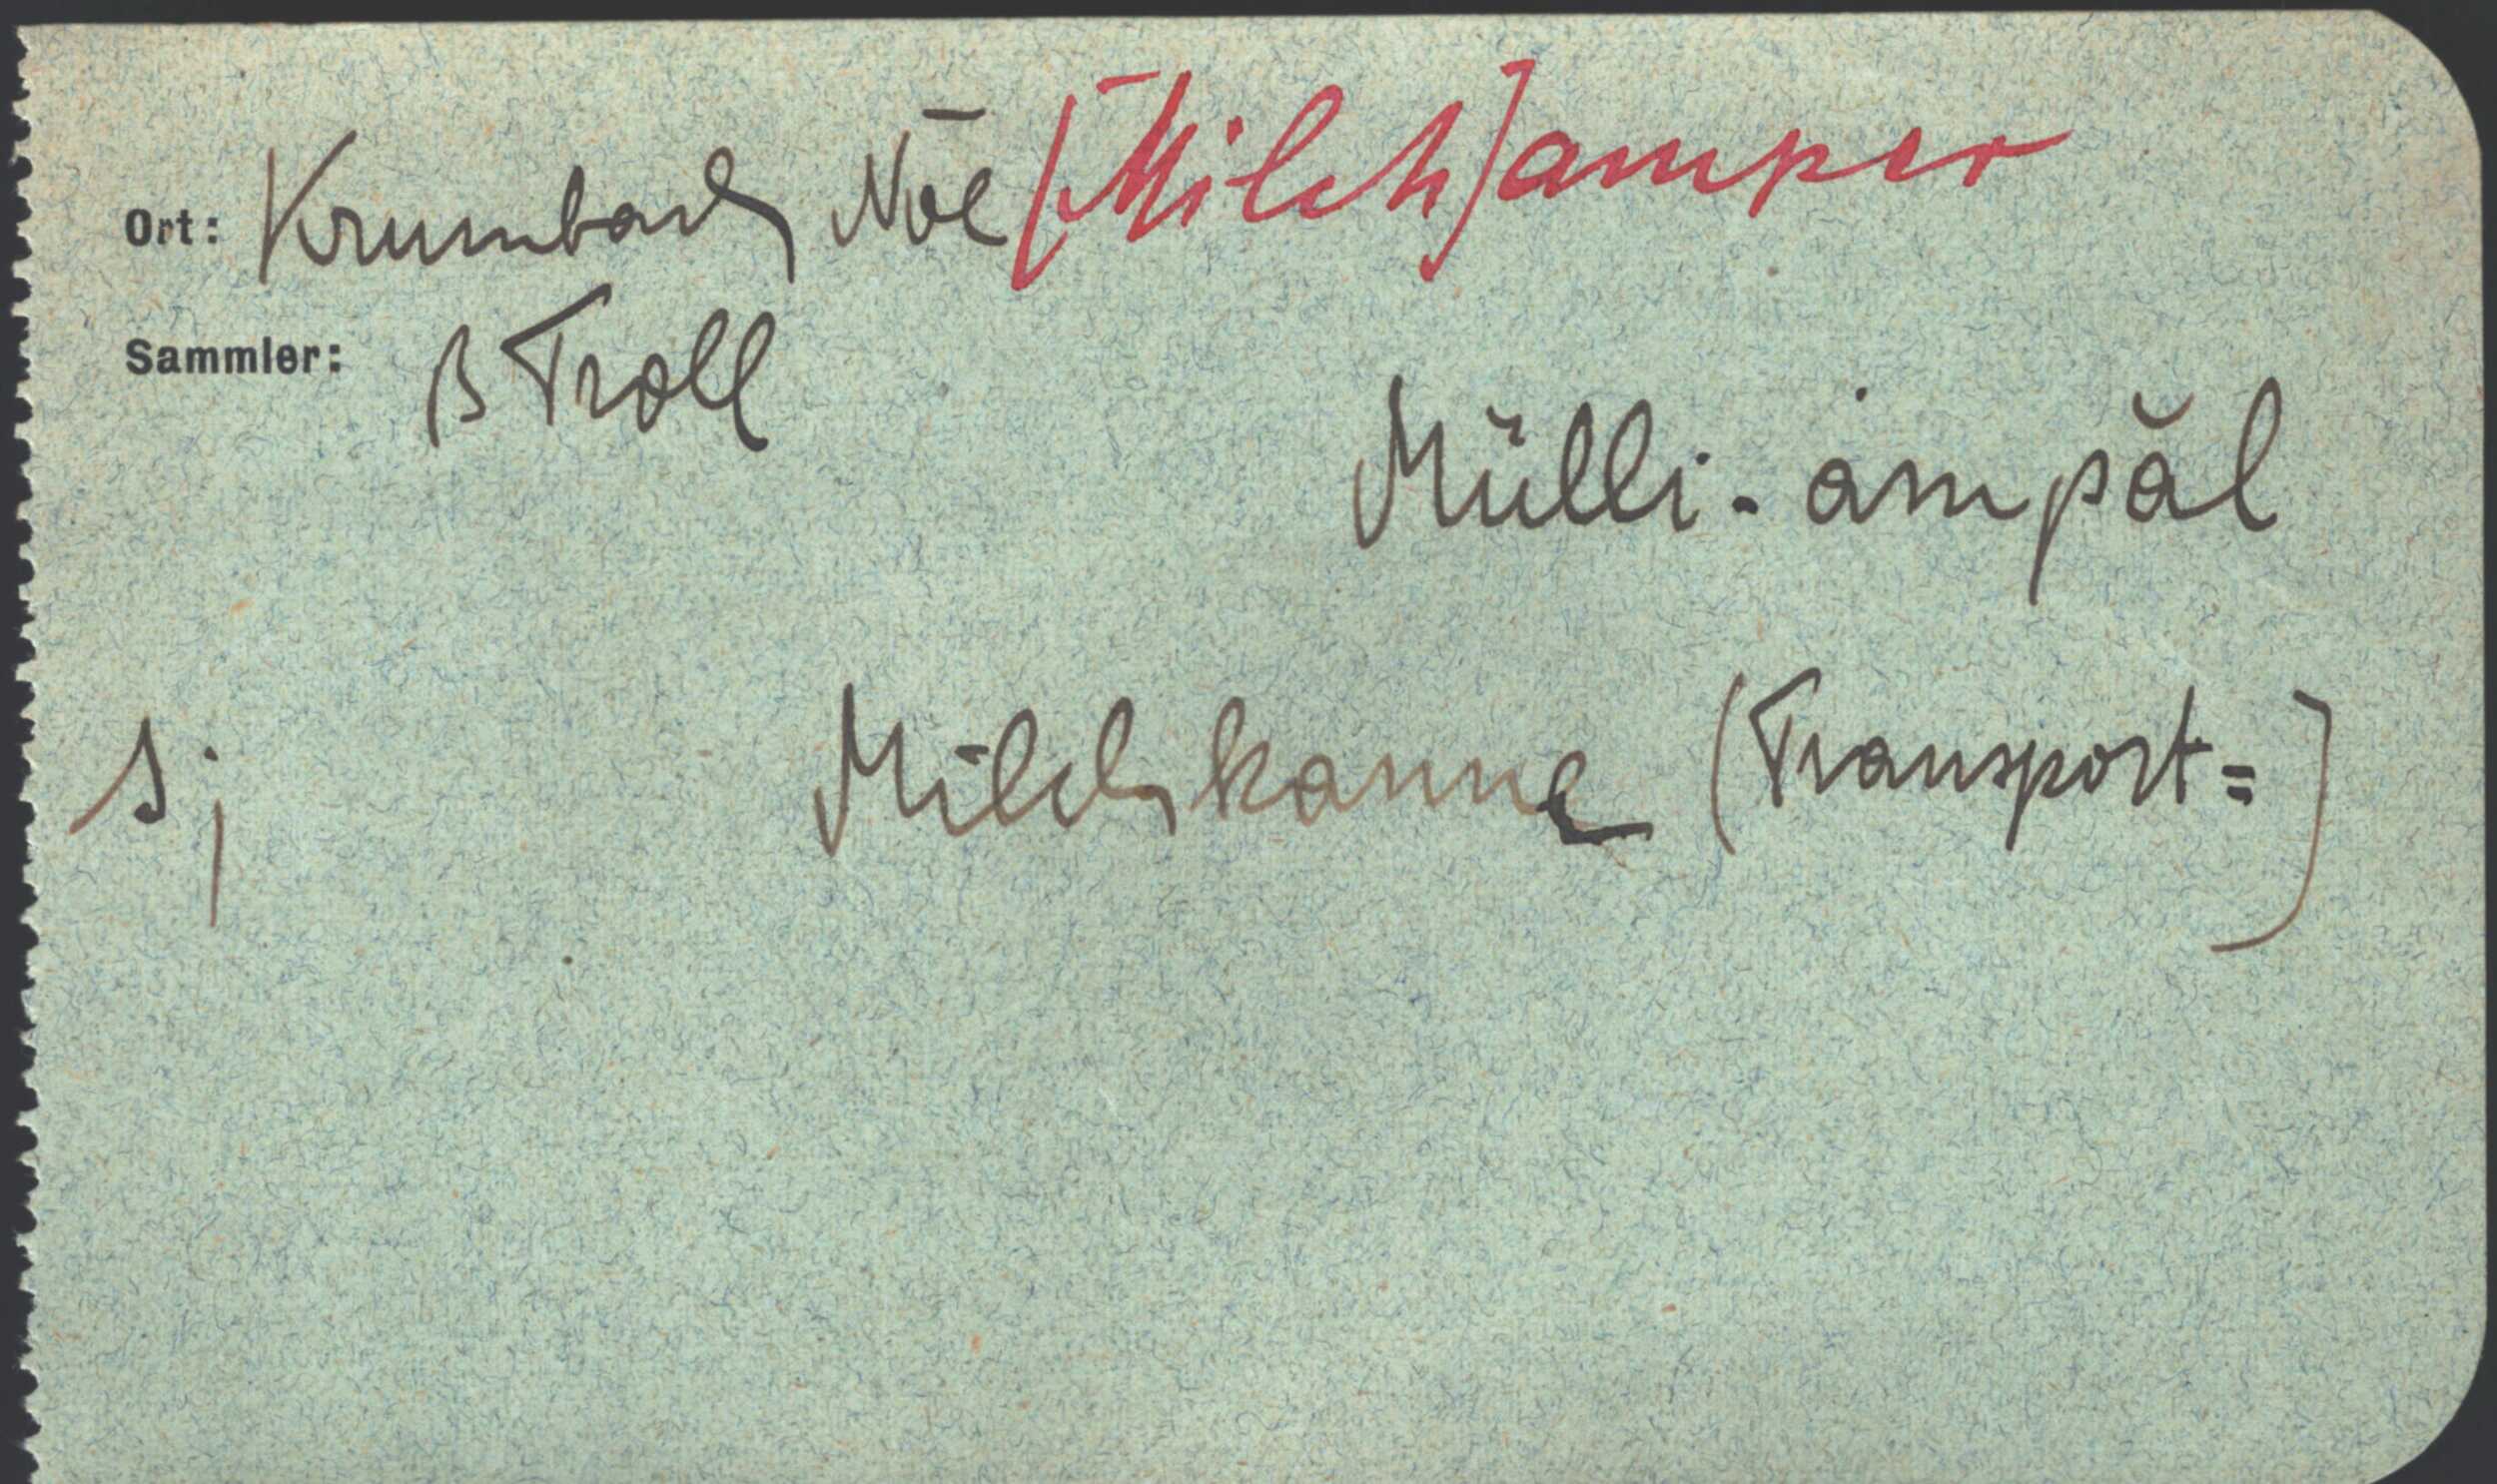 Ort: Krumbach Nöe [Milch]amper
Sammler: B Troll
Mülli-ȧmpăl
s; Milchkanne (Transport=)